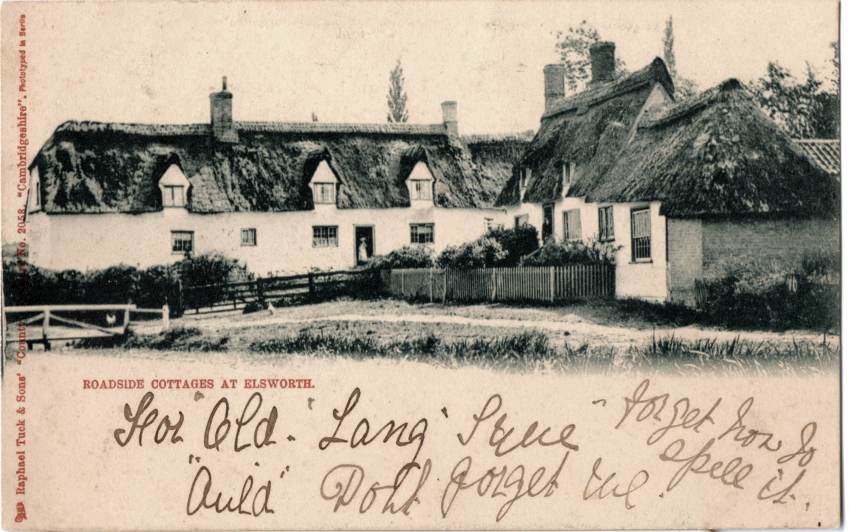 Raphael Tuck & Sons' "County" No. 2058. "Cambridgeshire". Phototyped in Berlin
ROADSIDE COTTAGES AT ELSWORTH.
For "Old" Lang Syne" forget how to
spell it.
"Auld" Don't forget me.